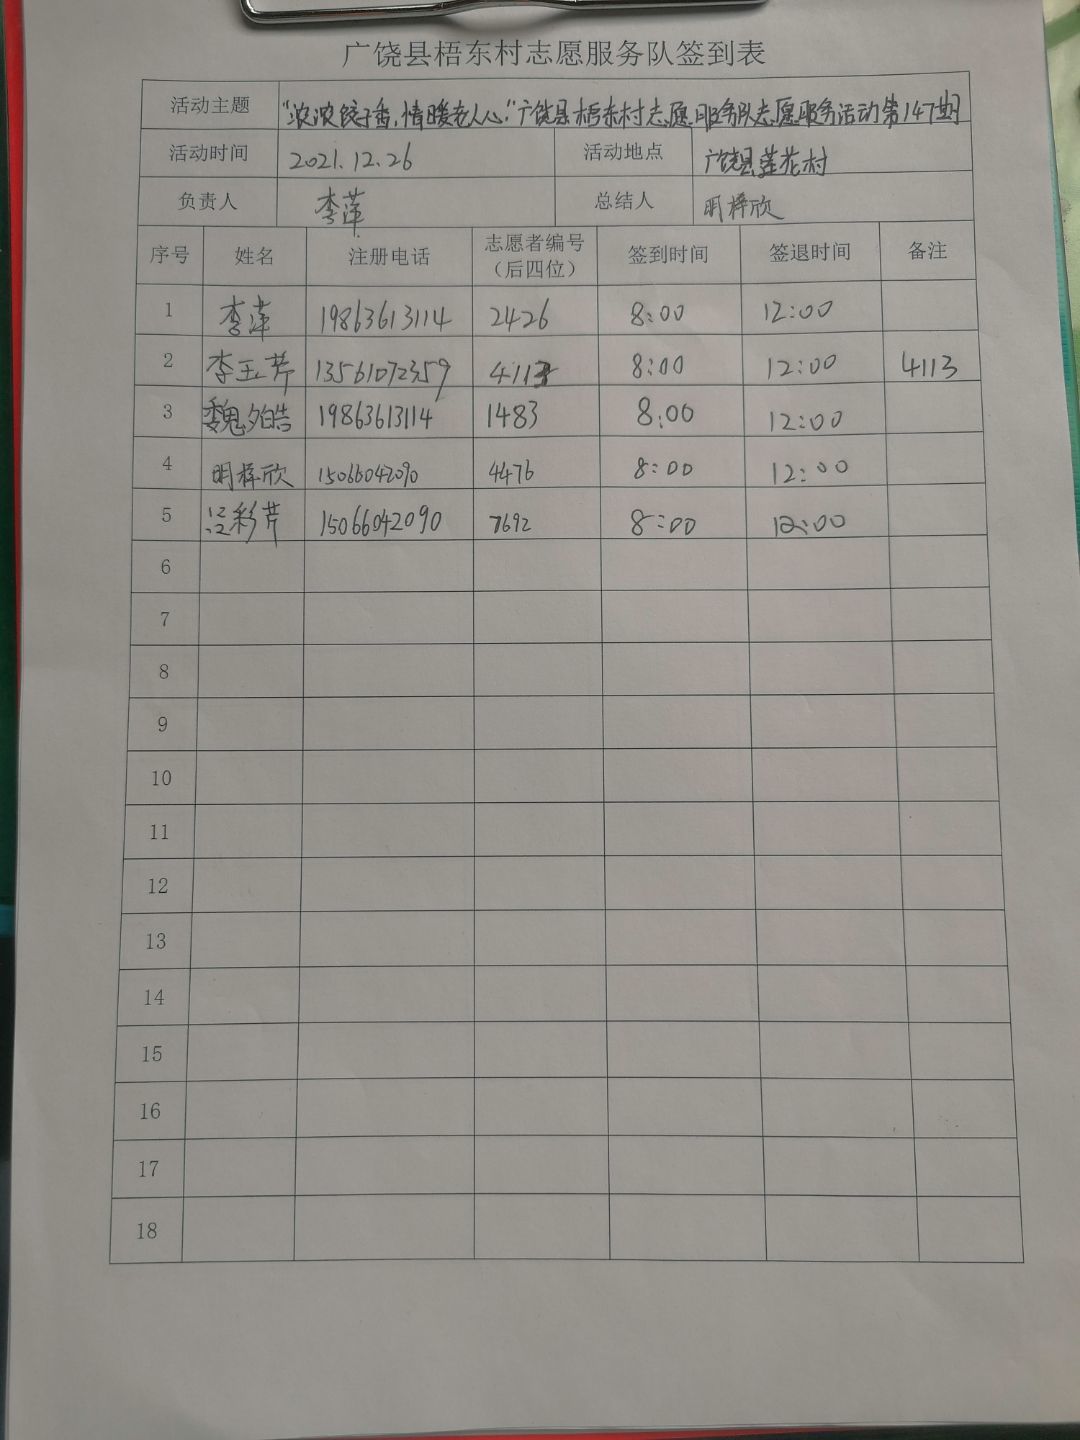 广饶县梧东村志愿服务队签到表
活动主题 “浓浓饺子香,情暖老人心”广饶县梧东村志愿服务队志愿服务活动第147期
活动时间 2021.12.26 活动地点 广饶县莲花村
负责人 李萍 总结人 明梓欣
序号 姓名 注册电话 志愿者编号（后四位） 签到时间 签退时间 备注
1 李萍 19863613114 2426 8:00 12:00
2 李玉芹 13561072359 4113 8:00 12:00 4113
3 魏夕皓 19863613114 1483 8:00 12:00
4 明梓欣 15066042090 4476 8:00 12:00
5 彩芹 15066042090 7692 8:00 12:00
6
7
8
9
10
11
12
13
14
15
16
17
18